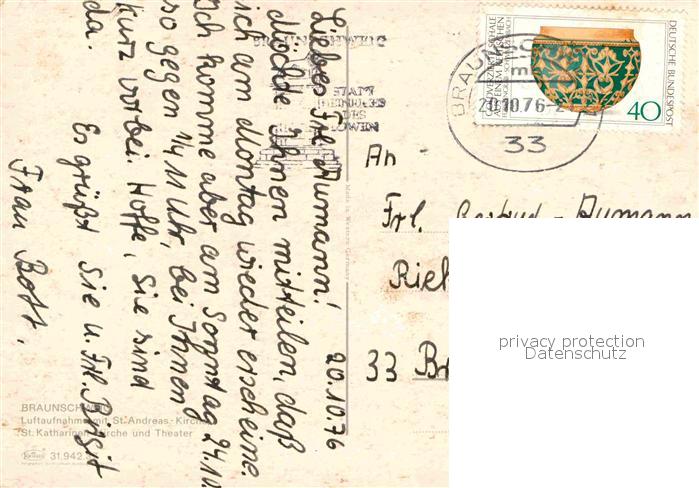 20.10.76
Liebes Frl. Aumann!
Möchte Ihnen mitteilen, daß
ich am Montag wieder erscheine.
Ich komme aber am Sonntag 24.10.
so gegen ¼ 11 Uhr, bei Ihnen
kurz vorbei. Hoffe, Sie sind
da.
Es grüßt Sie u. Frl. Birgit
Frau Bott.
An
Frl. Gertrud Aumann
33
DEUTSCHE BUNDESPOST
40
BRAUNSCHW
20.10.76
33
Made in Western Germany
BRAUNSCHWEIG
Luftaufnahme mit St. Andreas-Kirche
St. Katharinen-Kirche und Theater
Krüger 31.942
privacy protection
Datenschutz